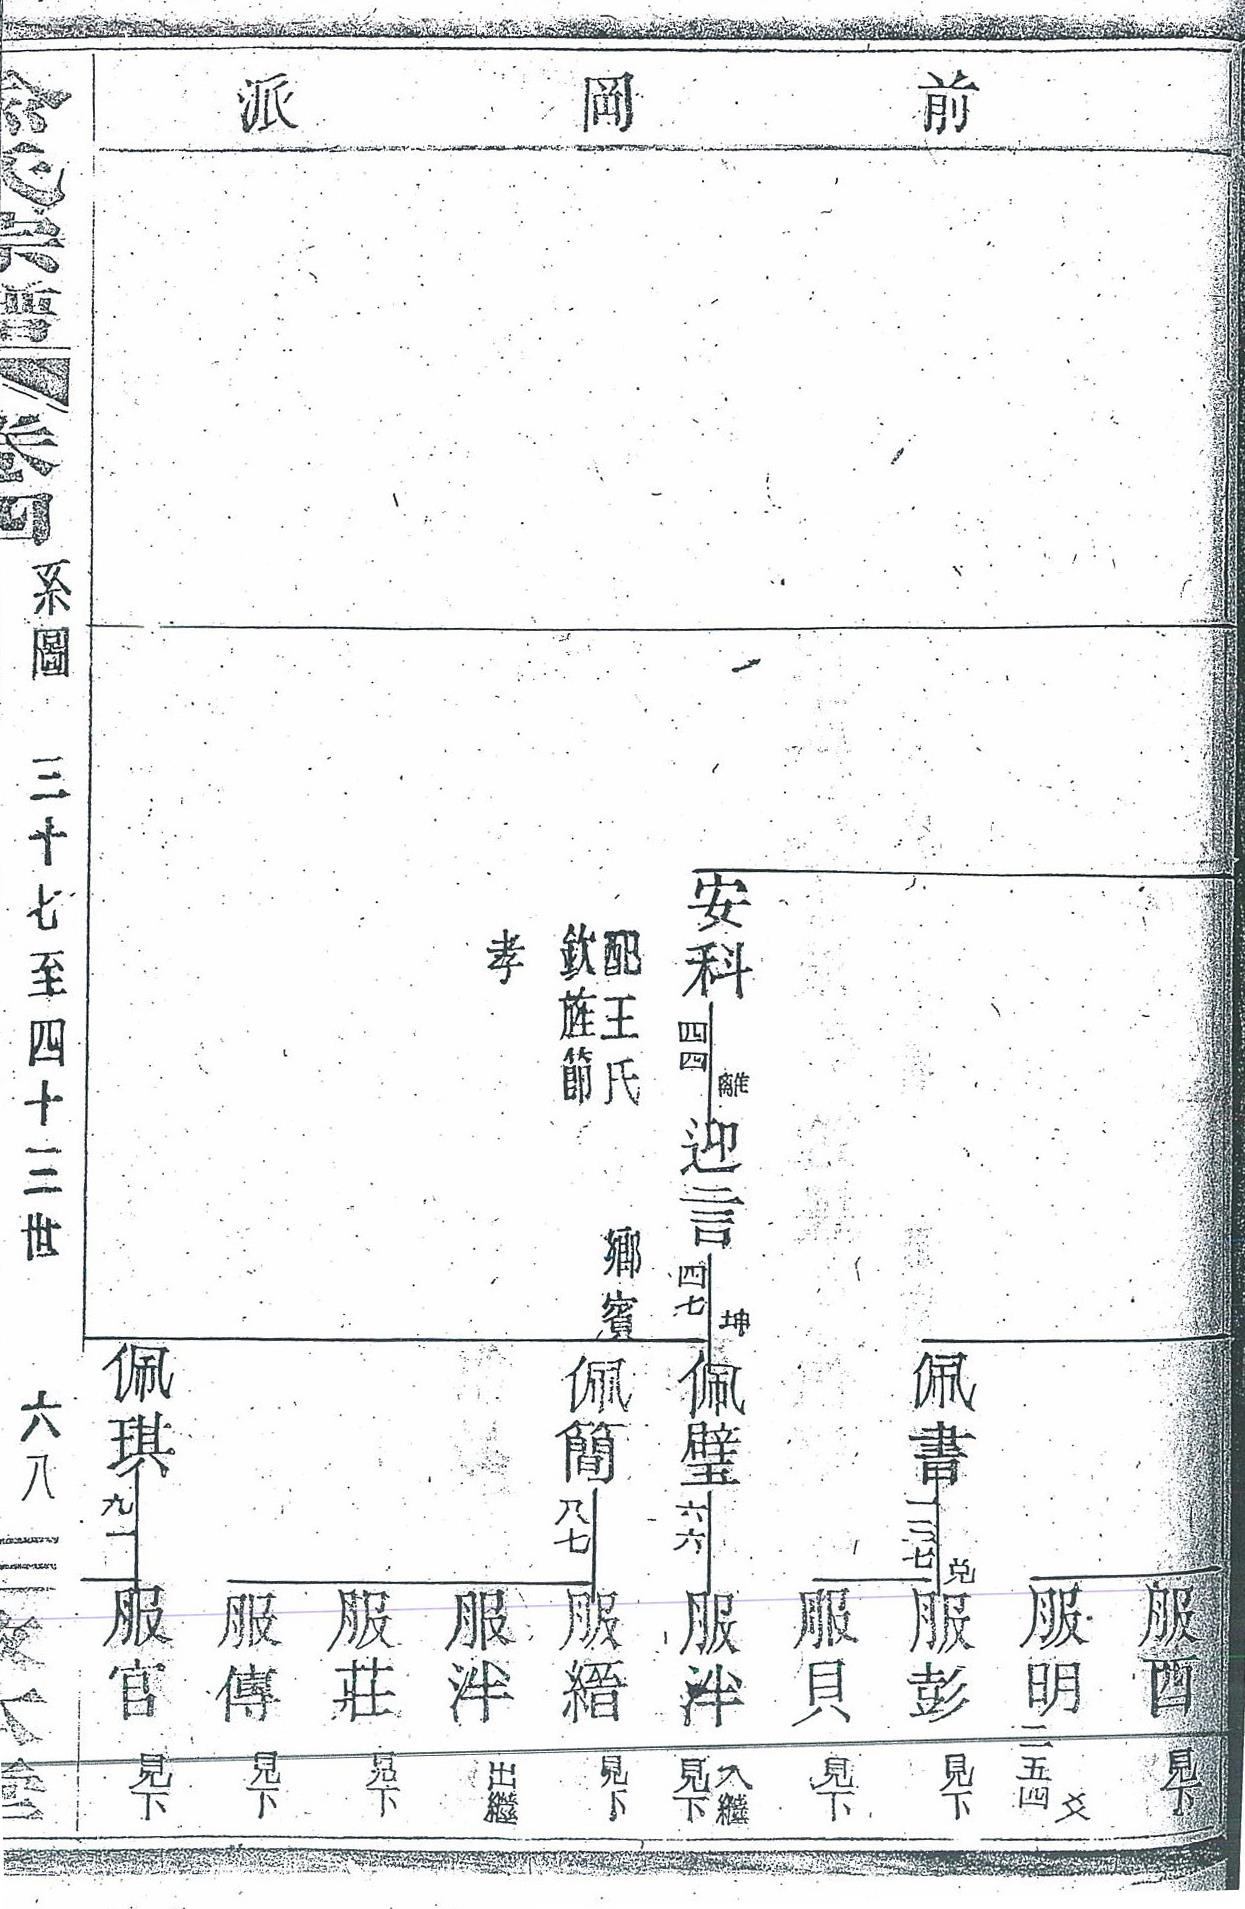 前岡派
安科
四四
離
配王氏
欽旌節
孝
迎言
四七
坤
鄉賓
佩書
一二七
兌
佩璧
六六
佩簡
八七
佩琪
九一
服酉
見下
服明
二五四
爻
服彭
見下
服貝
見下
服泮
入繼
見下
服縉
見下
服泮
出繼
服莊
見下
服傳
見下
服官
見下
宗譜
卷四
系圖
三十七至四十二世
六八